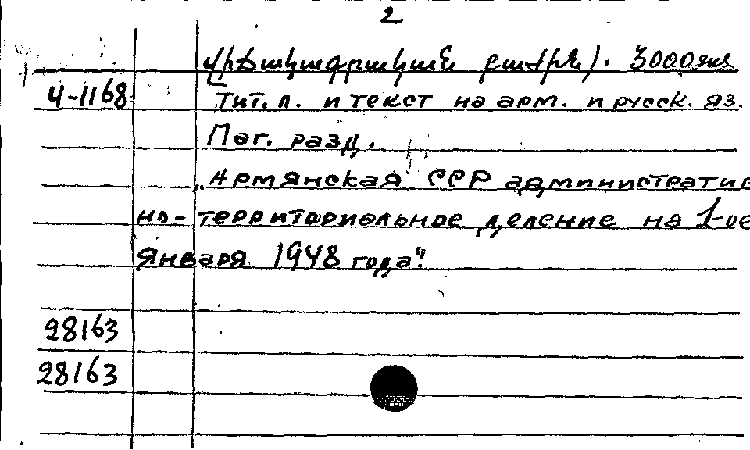 2
վիճակագրական բաժին). 3000 экз
4-1168 Тит. л. и текст на арм. и русск. яз.
Паг. разд.
„Армянская ССР административ
но-территориальное деление на 1-ое
января 1948 года".
28163
28163